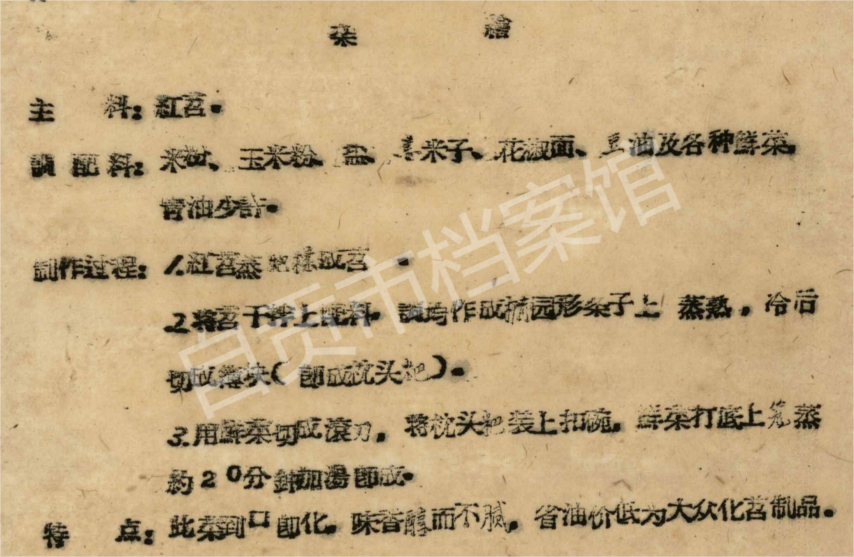 杂 烩
主 料：紅苕。
調配料：米粉、玉米粉、盐、米子、花椒面、豆油及各种鮮菜。
青油少許。
制作过程：1.紅苕蒸成苕。
2.将苕干拌上配料，調均作成橢园形条子上 蒸熟，冷后
切成薄块（即成枕头粑）。
3.用鮮菜切成滾刀，将枕头粑装上扣碗，鮮菜打底上笼蒸
約20分鈡加湯即成。
特 点：此菜到口即化。味香醇而不腻，省油价低为大众化苕制品。
自贡市档案馆